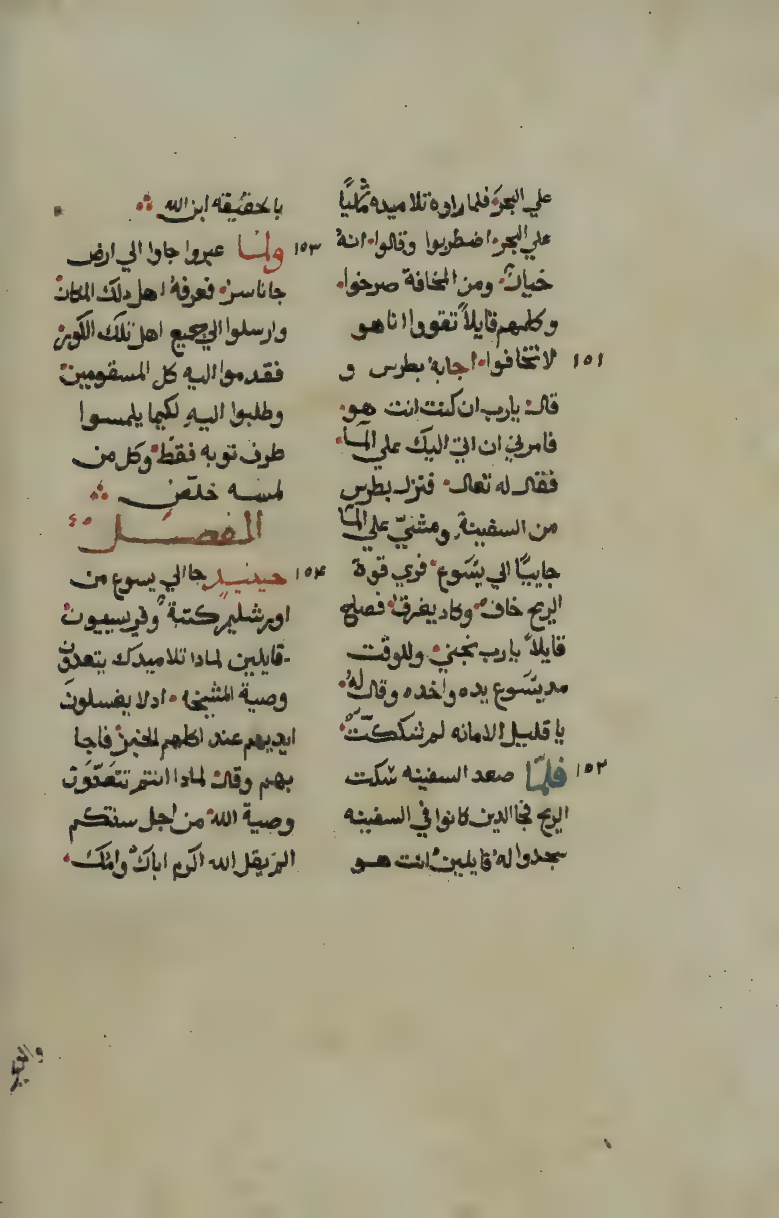 علي البحر فلما راوه تلاميده ماشيًا
علي البحر اضطربوا وقالوا انهُ
خيال ومن المخافة صرخوا
وكلمهم قايلاً تقووا انا هو
١٥١ لا تخافوا اجابهُ بطرس و
قال يارب ان كنت انت هو
فامرني ان اتي اليك علي المــا
فقال له تعال فنزل بطرس
من السفينة ومشيّ علي المـا
جاييًا الي يسوع فري قوة
الريح خاف وكاد يغرق فصاح
قايلاً يارب نجني وللوقت
مد يسوع يده واخده وقال لهُ
يا قليل الامانه لم تشككتّ
١٥٢ فلمّا صعد السفينه سكت
الريح فجا الدين كانوا في السفينه
سجدوا له قايلين انت هــو
بالحقيقه ابن الله
١٥٣ ولمـا عبروا جاوا الي ارض
جاناسر فعرفهُ اهل دلك المكان
وارسلوا الي جميع اهل تلك الكور
فقدموا اليه كل المسقومين
وطلبوا اليهِ لكيما يلمسوا
طرف توبه فقط وكل من
لمسه خلّص
الفصـــل ٤٥
١٥٤ حينيد جا الي يسوع من
اورشليم كتبة وفريسيون
قايلين لمادا تلاميدك يتعدون
وصية المشيخه ادلا يغسلون
ايديهم عند اكلهم الخبز فاجا
بهم وقال لمادا انتم تتعدّون
وصية الله من اجل سنتكم
الم يقل الله اكرم اباك وامك